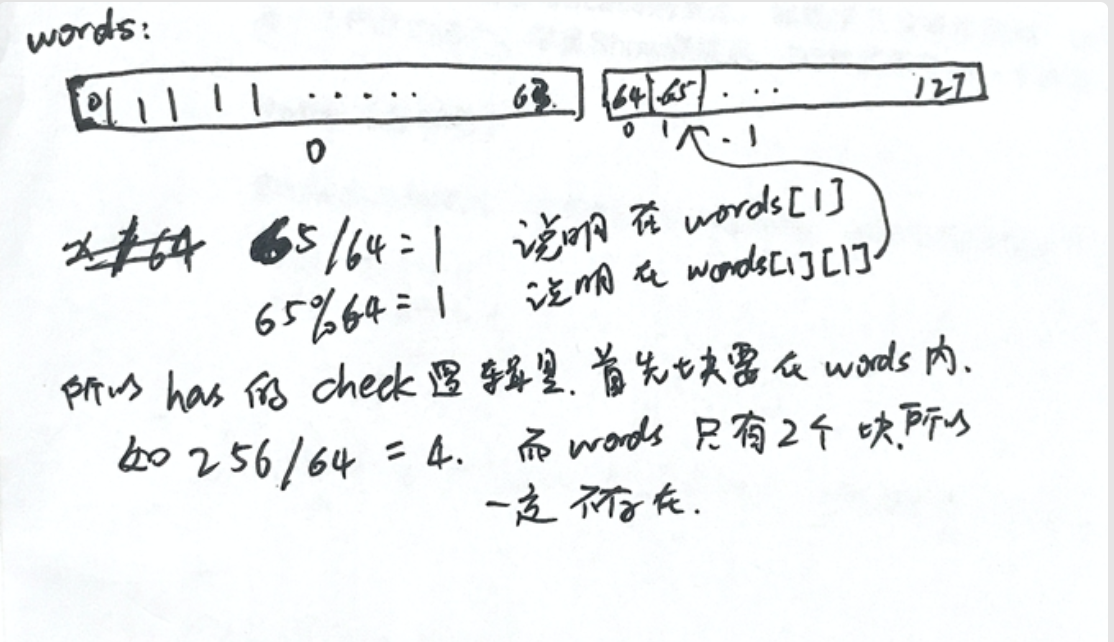 words:
0 ..... 63
64 65 ... 127
0
0 1 . 1
65/64=1 说明 在 words[1]
65%64=1 说明 在 words[1][1]
所以 has 的 check 逻辑是. 首先块要在 words 内.
如 256/64 = 4. 而 words 只有2个块,所以
一定不存在.